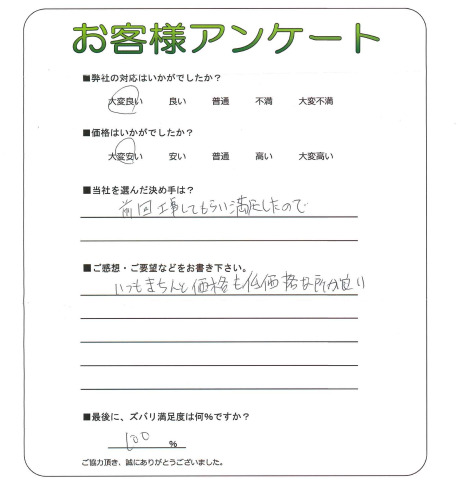 お客様アンケート
■弊社の対応はいかがでしたか？
大変良い 良い 普通 不満 大変不満
■価格はいかがでしたか？
大変安い 安い 普通 高い 大変高い
■当社を選んだ決め手は？
前回工事してもらい満足したので
■ご感想・ご要望などをお書き下さい。
いつもきちんと価格も低価格な所が良い
■最後に、ズバリ満足度は何%ですか？
100 %
ご協力頂き、誠にありがとうございました。